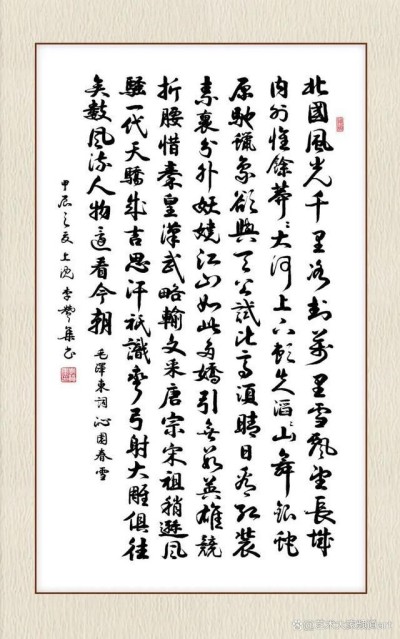 北國風光千里冰封萬里雪飄望長城
内外惟餘莽〻大河上下頓失滔〻山舞銀蛇
原馳蠟象欲與天公試比高須晴日看紅裝
素裹分外妖嬈江山如此多嬌引無數英雄競
折腰惜秦皇漢武略輸文采唐宗宋祖稍遜風
騷一代天驕成吉思汗祇識彎弓射大雕俱往
矣數風流人物還看今朝
毛澤東詞 沁園春雪
甲辰之夏上 李 集書